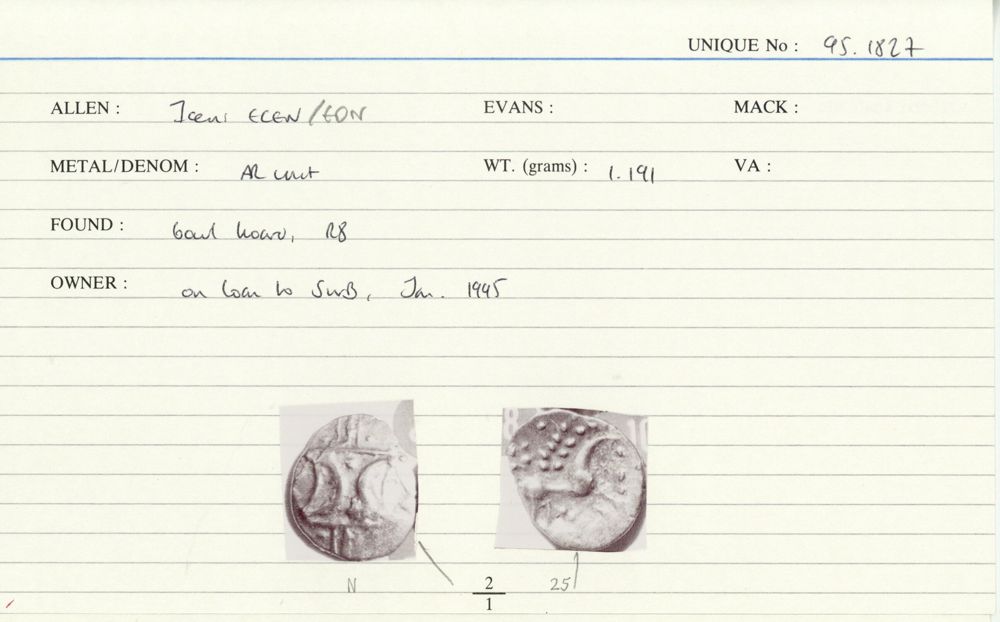 UNIQUE No : 95.1827
ALLEN : Iceni ECEN/EDN EVANS : MACK :
METAL/DENOM : AR unit WT. (grams) : 1.191 VA :
FOUND : hoard, R8
OWNER : on loan to SWB, Jan. 1995
8 10
N 2 25
1